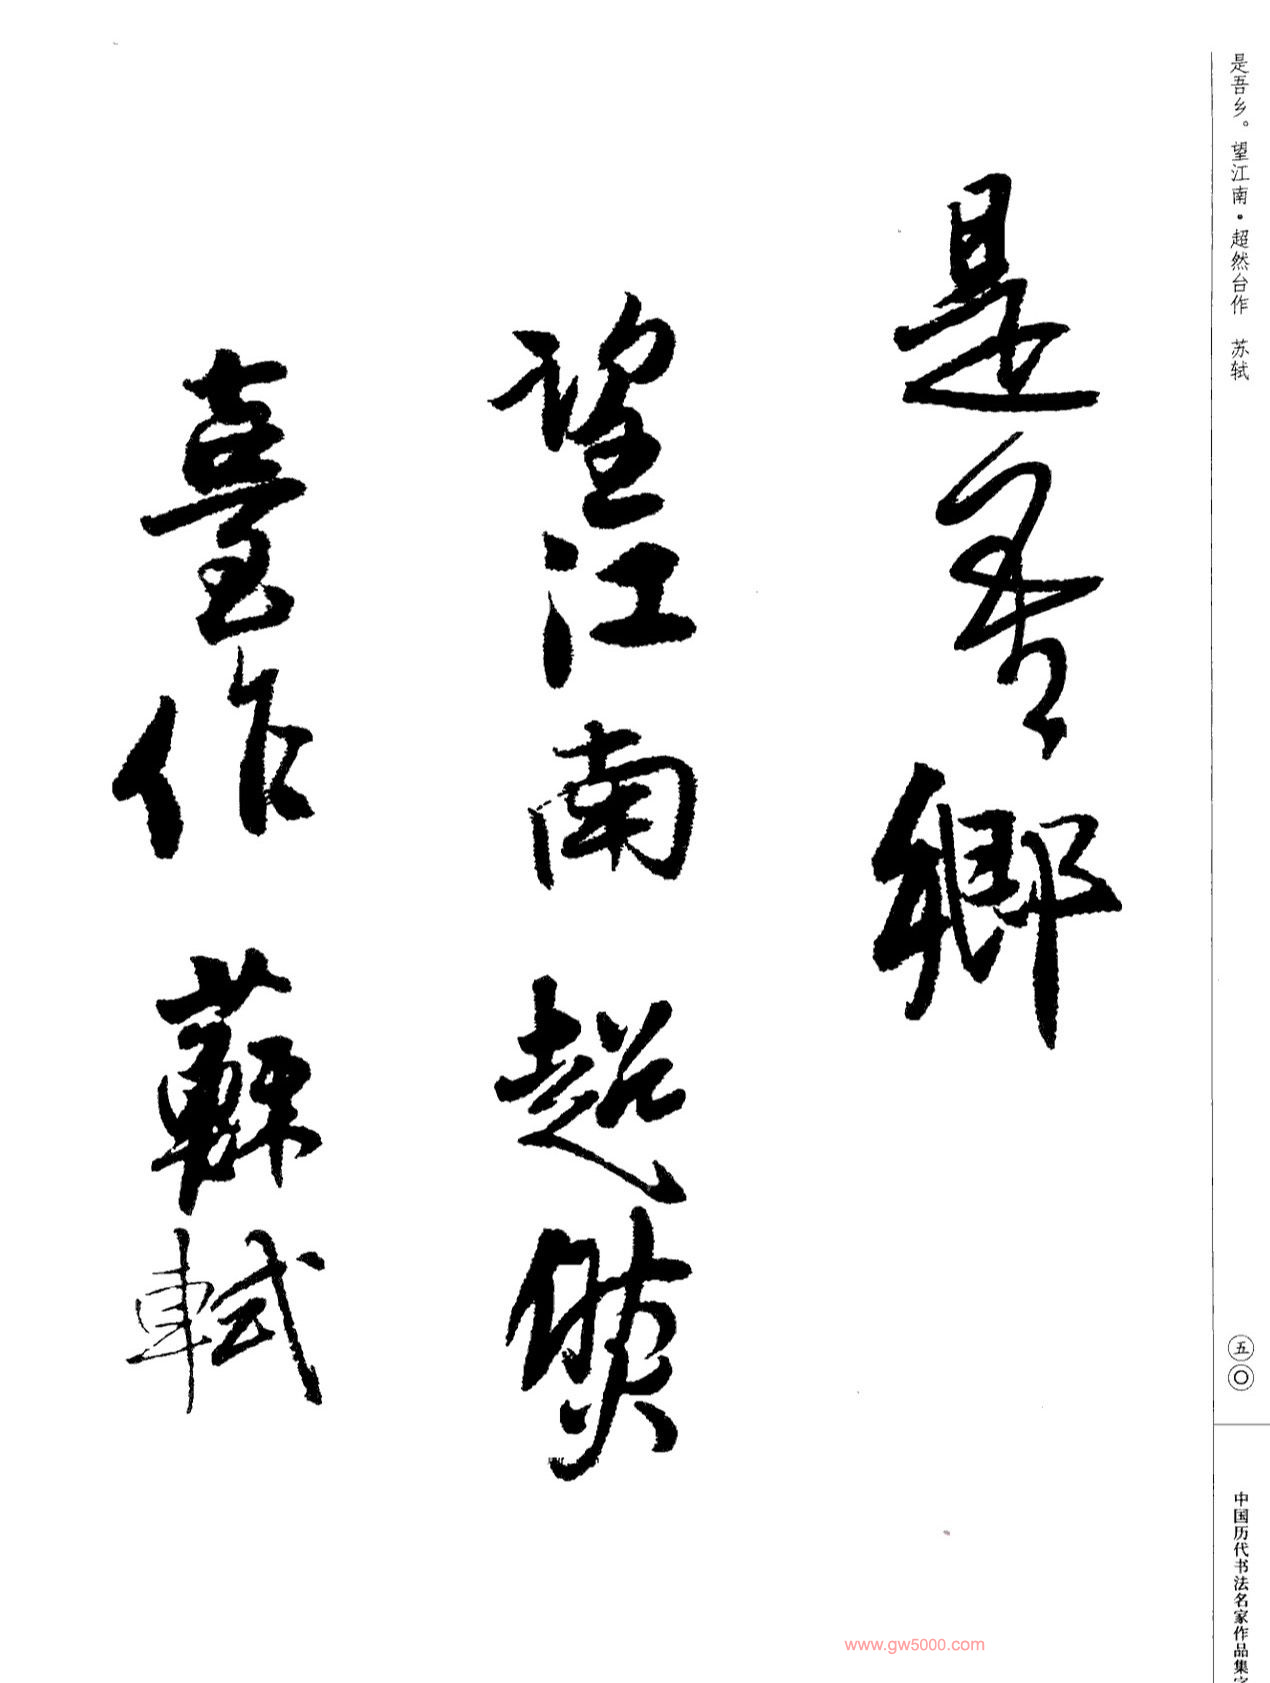 是吾乡。望江南·超然台作 苏轼
是吾鄉
望江南超然
臺作 蘇軾
五〇
中国历代书法名家作品集字
www.gw5000.com